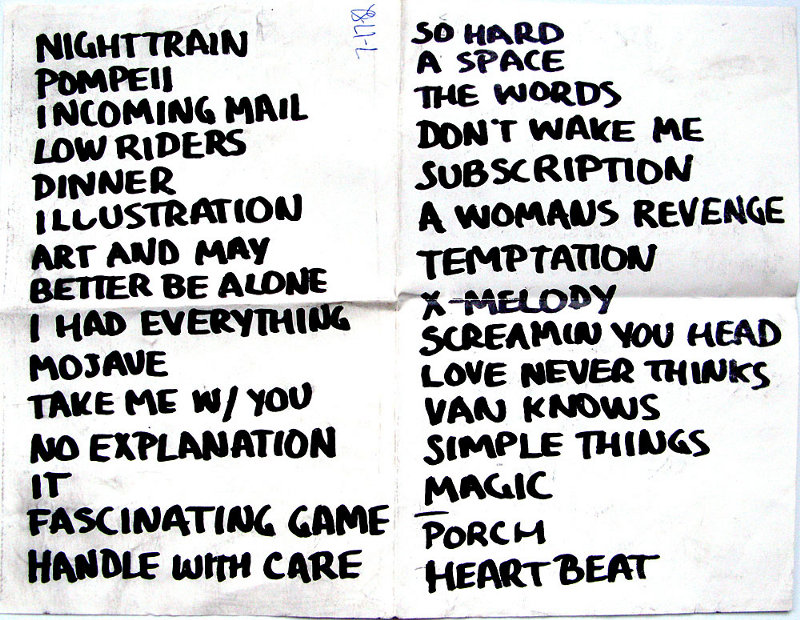 NIGHTTRAIN
POMPEII
INCOMING MAIL
LOW RIDERS
DINNER
ILLUSTRATION
ART AND MAY
BETTER BE ALONE
I HAD EVERYTHING
MOJAVE
TAKE ME W/ YOU
NO EXPLANATION
IT
FASCINATING GAME
HANDLE WITH CARE
SO HARD
A SPACE
THE WORDS
DON'T WAKE ME
SUBSCRIPTION
A WOMANS REVENGE
TEMPTATION
X-MELODY
SCREAMIN YOU HEAD
LOVE NEVER THINKS
VAN KNOWS
SIMPLE THINGS
MAGIC
PORCH
HEART BEAT